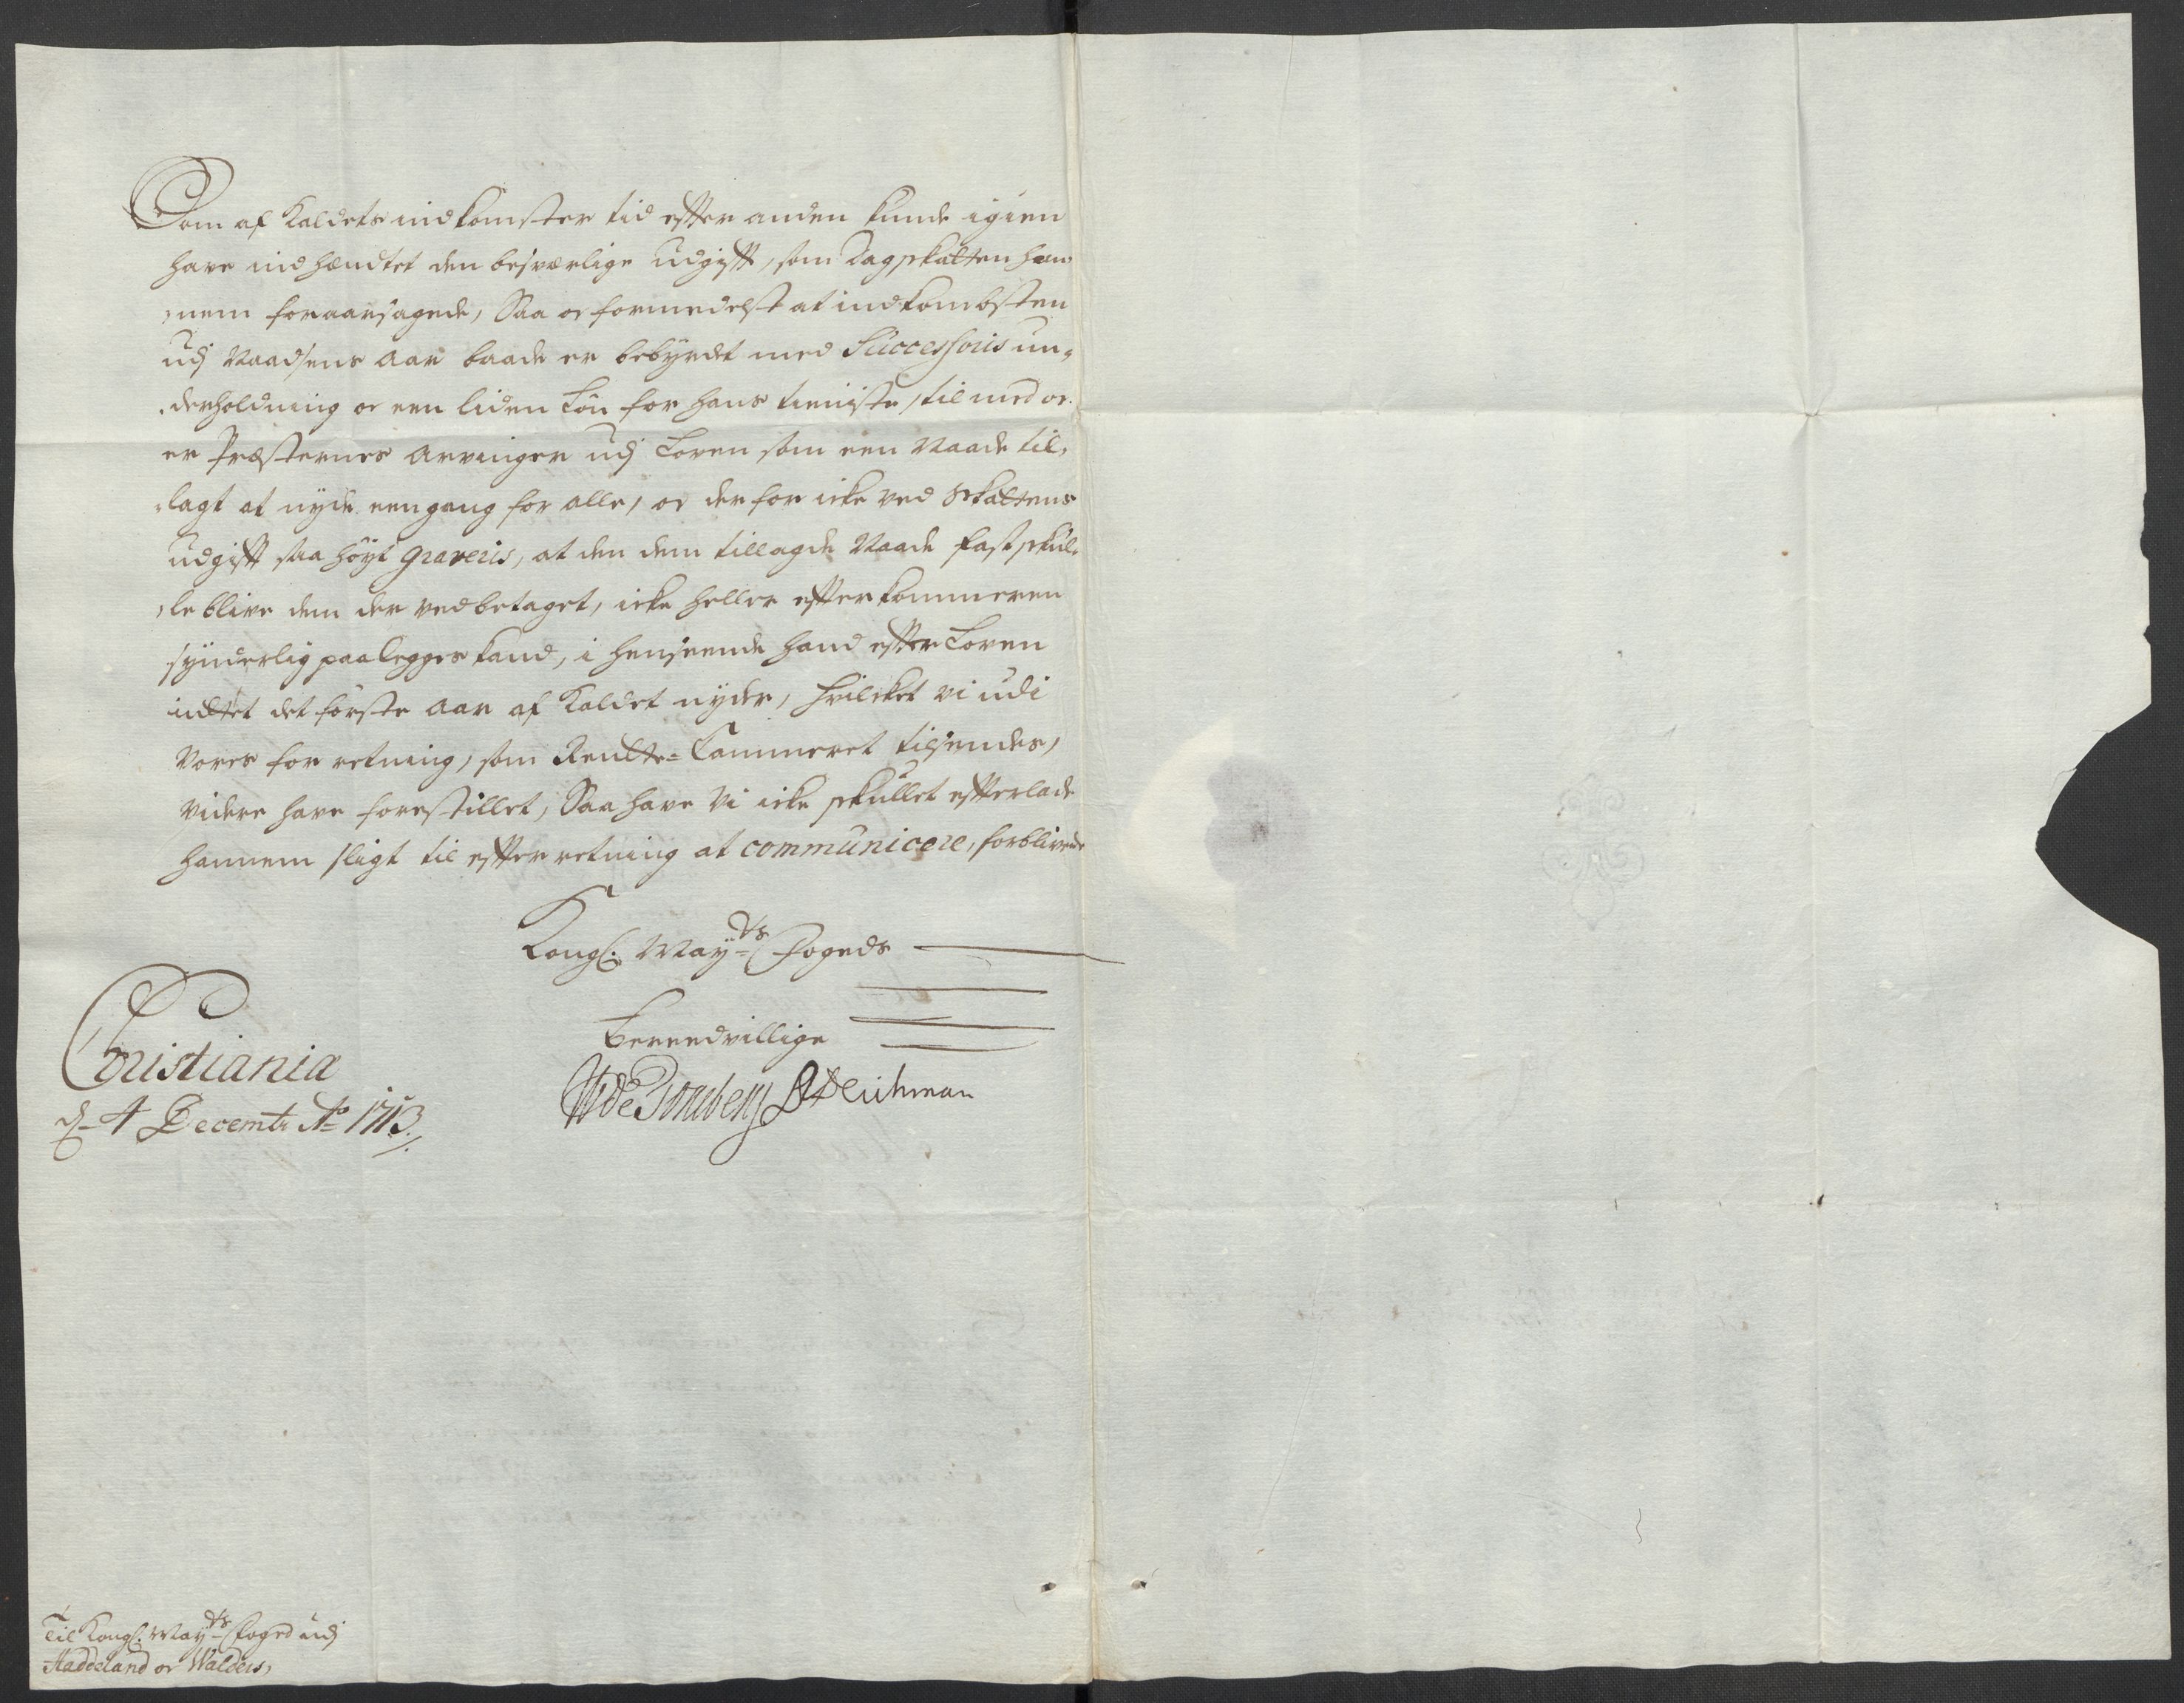 Som af Kaldets indkomster tid effter anden kunde igien
have indhændtet den besværlige udgifft, som Dagskatten han
nem foraarsagede, Saa oc formedelst at indkombsten
udj Naadsens Aar baade er bebyrdet med Successoris un-
derholdning oc een liden Løn for hans tieniste, til med oc
er Præsternes Arvinger udj Loven som een Naade til-
lagt at nyde eengang for alle, oc derfor icke ved Skattens
udgifft saa høyt graveris, at den dem tillagde Naade fast skul-
le blive dem der ved betaget, icke heller effterkommeren
synderlig paalegges kand, i henseende hand effter Loven
indtet det første Aar af Kaldet nyder, hvilcket vi udi
vores forretning, som Rendte-Cammeret tilsendes,
videre have forestillet, Saa have Vi icke skullet effterlade
hannem sligt til effterretning at communicere, forblivende
Kongl. May:ts Fogeds
Bereedvillige
Deichman
Christiania
d. 4 Decembr Ao 1713.
Til Kongl. May:ts Foged udj
Haddeland oc Walders,